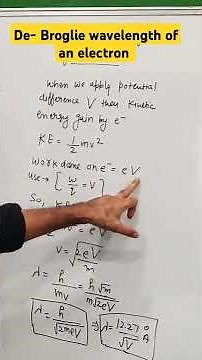 De- Broglie wavelength of
an electron
When we apply potential
difference V then kinetic
energy gain by e⁻
KE = 1/2 mv²
Work done on e⁻ = eV
Use → [ w/q = V ]
So,
V = √(2eV/m)
λ = h/mv = h√m/m√2eV
λ = h/√2meV ⇒ λ = 12.27/√V Å